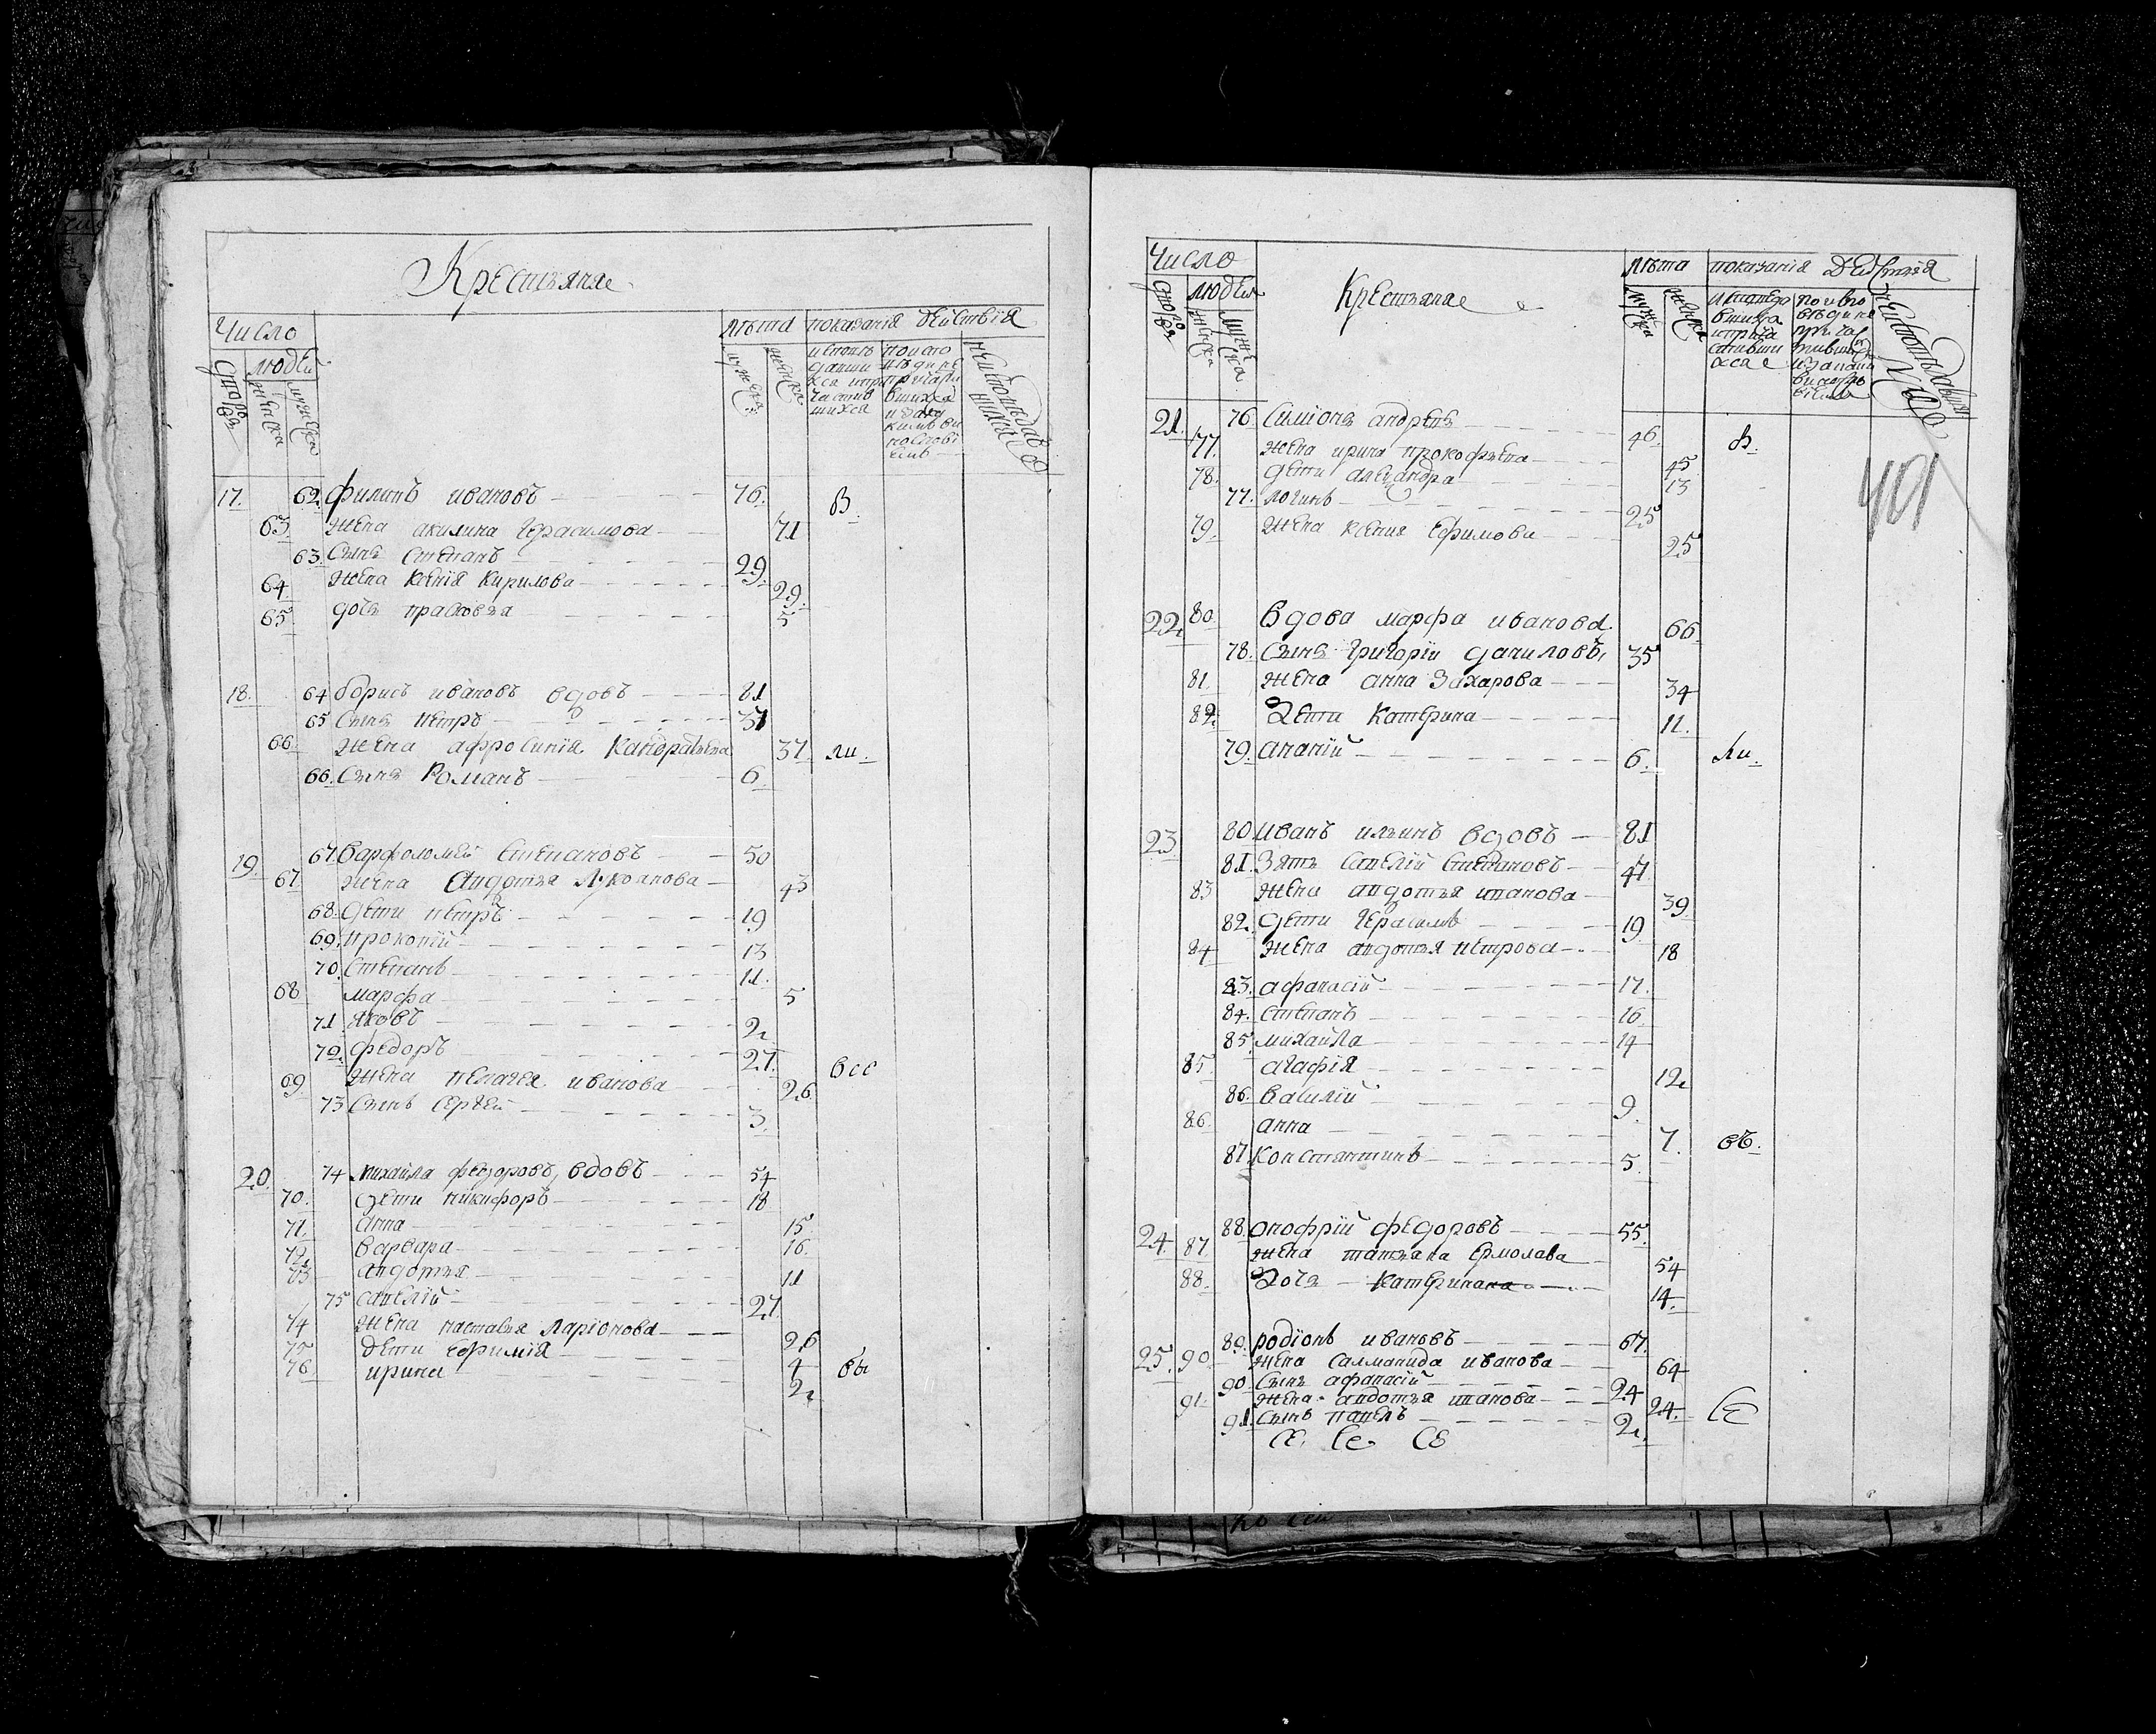 Крестьяня
Число
лѣта показания действия
людей
17. 62. филипъ ивановъ 76. В
63. жена акилина герасимова 71
63. сынъ степанъ 29.
64. жена ксенїя кирилова 29.
65. дочь прасковья 5
18. 64 борисъ ивановъ вдовъ 81
65 сынъ петръ 37
66. жена афросинїя 37. ли.
66. сынъ Романъ 6
19. 67. варфоломей степановъ 50
67. жена авдотья 43
68. дети петръ 19
69. прокопїй 13
70. степанъ 11.
68 марфа 5
71 яковъ 2
72. федоръ 27. всс
69. жена пелагея иванова 26
73 сынъ сергей 3.
20. 74 михайла федоровъ, вдовъ 54
70. дети никифоръ 18
71. анна 15
72. варвара 16.
73 авдотья 11
75 савелїй 27
74 жена настасья ларїонова 26
75 дети ефимїя 4 вы
76. ирина 2
Число
лѣта показания действия
людей
Крестьяня
401
21. 76. симїонъ андреевъ 46. В.
77. жена ирина прокофьева 45
78. дети александра 13
77. логинъ 25
79. жена ксения ефимова 25
22. 80. Вдова марфа иванова 66
78. сынъ григорїи даниловъ, 35
81. жена анна захарова 34
82. дети катерина 11.
79. ананїй 6. ли.
23 80 иванъ ильинъ вдовъ 81
81. зять савелїй степановъ 47
83 жена авдотья иванова 39.
82. дети герасимъ 19
84 жена авдотья петрова 18
83. афанасїй 17.
84. степанъ 16
85. михайла 14
85. агафїя 12
86. василїй 9
86. анна 7. въ.
87 константинъ 5
24. 88. онофрїй федоровъ 55.
87 жена татьяна ермолава 54
88. дочь катерина 14.
25. 89. родїонъ ивановъ 67.
90. жена саламанида иванова 64
90. сынъ афанасїй 24
91. жена авдотья иванова 24. се
91. сынъ павелъ 2.
се. се. се